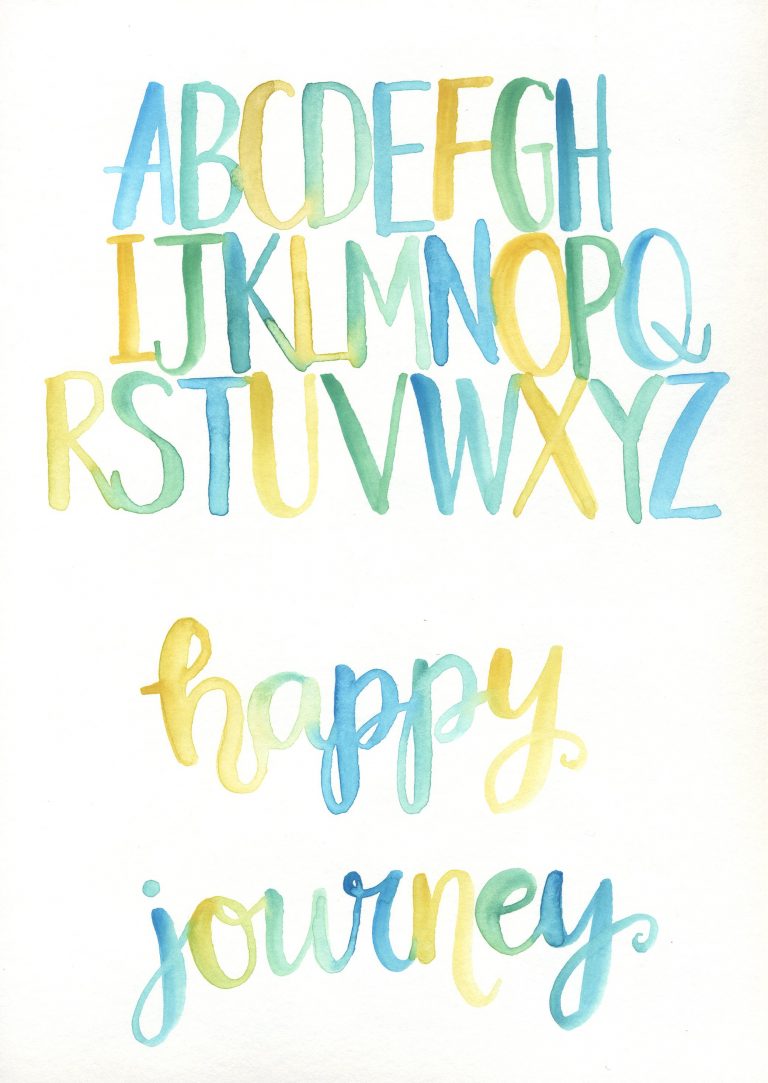 ABCDEFGH
IJKLMNOPQ
RSTUVWXYZ
happy
journey